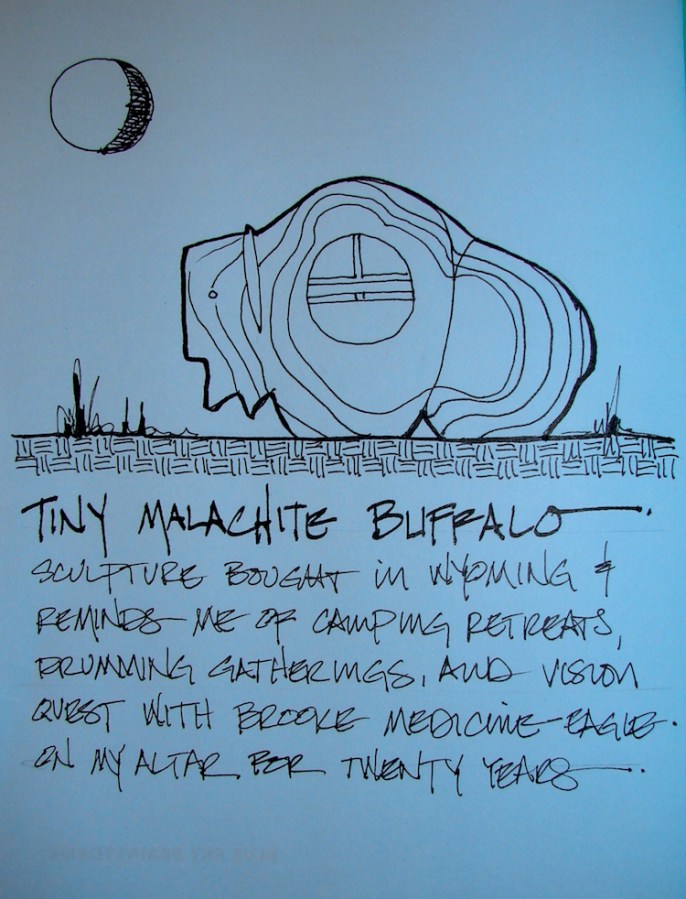 TINY MALACHITE BUFFALO
SCULPTURE BOUGHT in WYOMING &
REMINDS ME OF CAMPING RETREATS,
DRUMMING GATHERINGS, AND VISION
QUEST WITH BROOKE MEDICINE-EAGLE.
ON MY ALTAR FOR TWENTY YEARS.